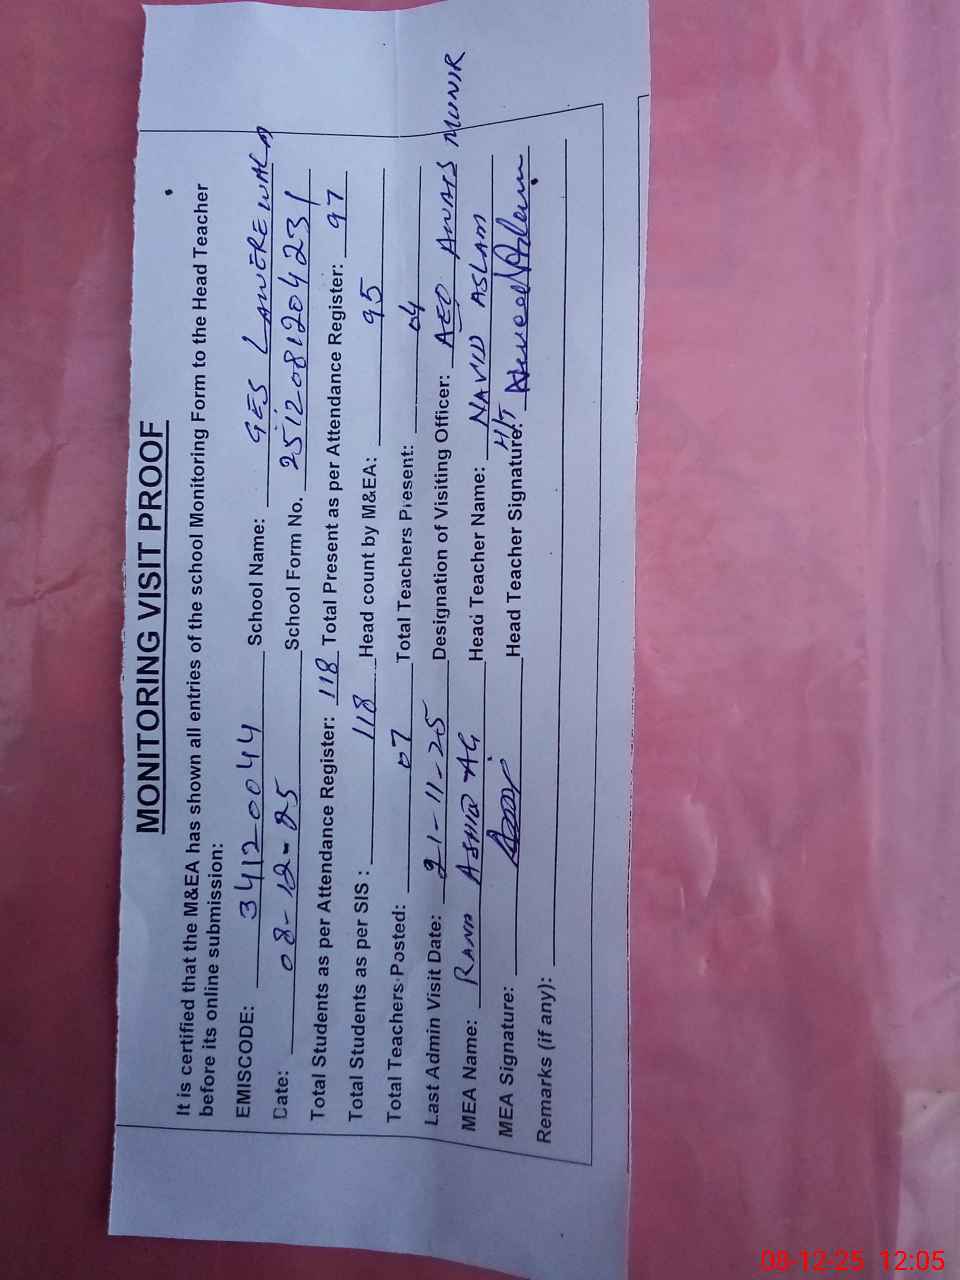 MONITORING VISIT PROOF
It is certified that the M&EA has shown all entries of the school Monitoring Form to the Head Teacher
before its online submission:
EMISCODE: 34120044 School Name: GES LAWEREWALA
Date: 08-12-25 School Form No. 2512081204231
Total Students as per Attendance Register: 118 Total Present as per Attendance Register: 97
Total Students as per SIS: 118 Head count by M&EA: 95
Total Teachers Posted: 07 Total Teachers Present: 04
Last Admin Visit Date: 21-11-25 Designation of Visiting Officer: AEO AWAIS MUNIR
MEA Name: RANA ASHIQ Head Teacher Name: NAVID ASLAM
MEA Signature: Head Teacher Signature: H/T
Remarks (if any):
08-12-25 12:05